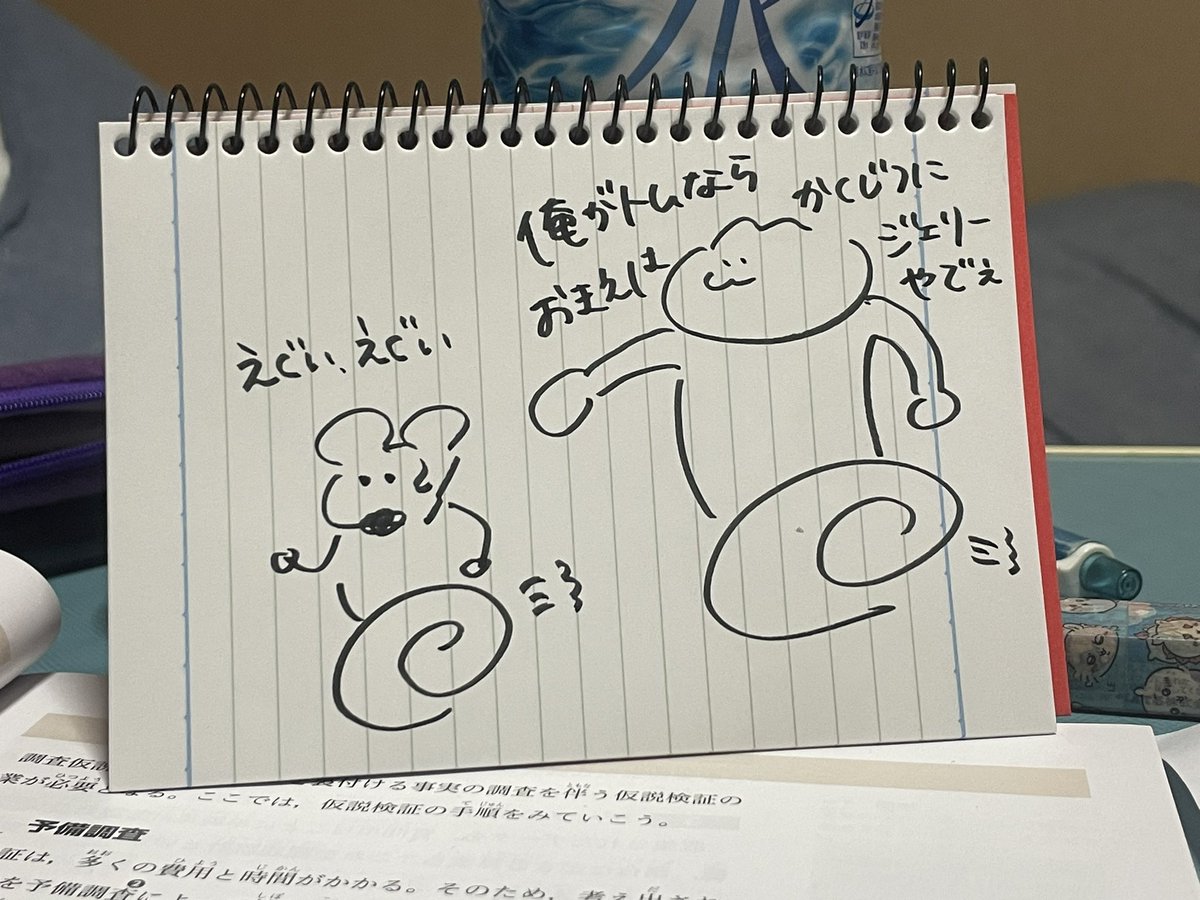 俺がトムなら
おまえは
かくじつに
ジェリー
やでぇ
えぐい、えぐい
業が必要となる。ここでは，仮説検証の手順をみていこう。
付ける事実の調査を伴う仮説検証の
予備調査
証は，多くの費用と時間がかかる。そのため，
を予備調査